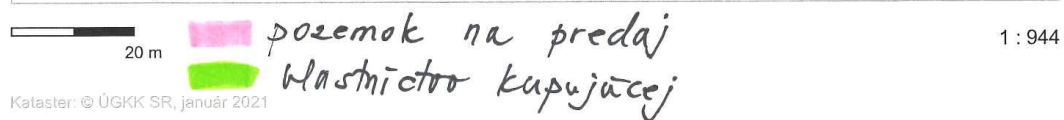 pozemok na predaj
1 : 944
20 m
vlastníctvo kupujúcej
Kataster: © ÚGKK SR, január 2021